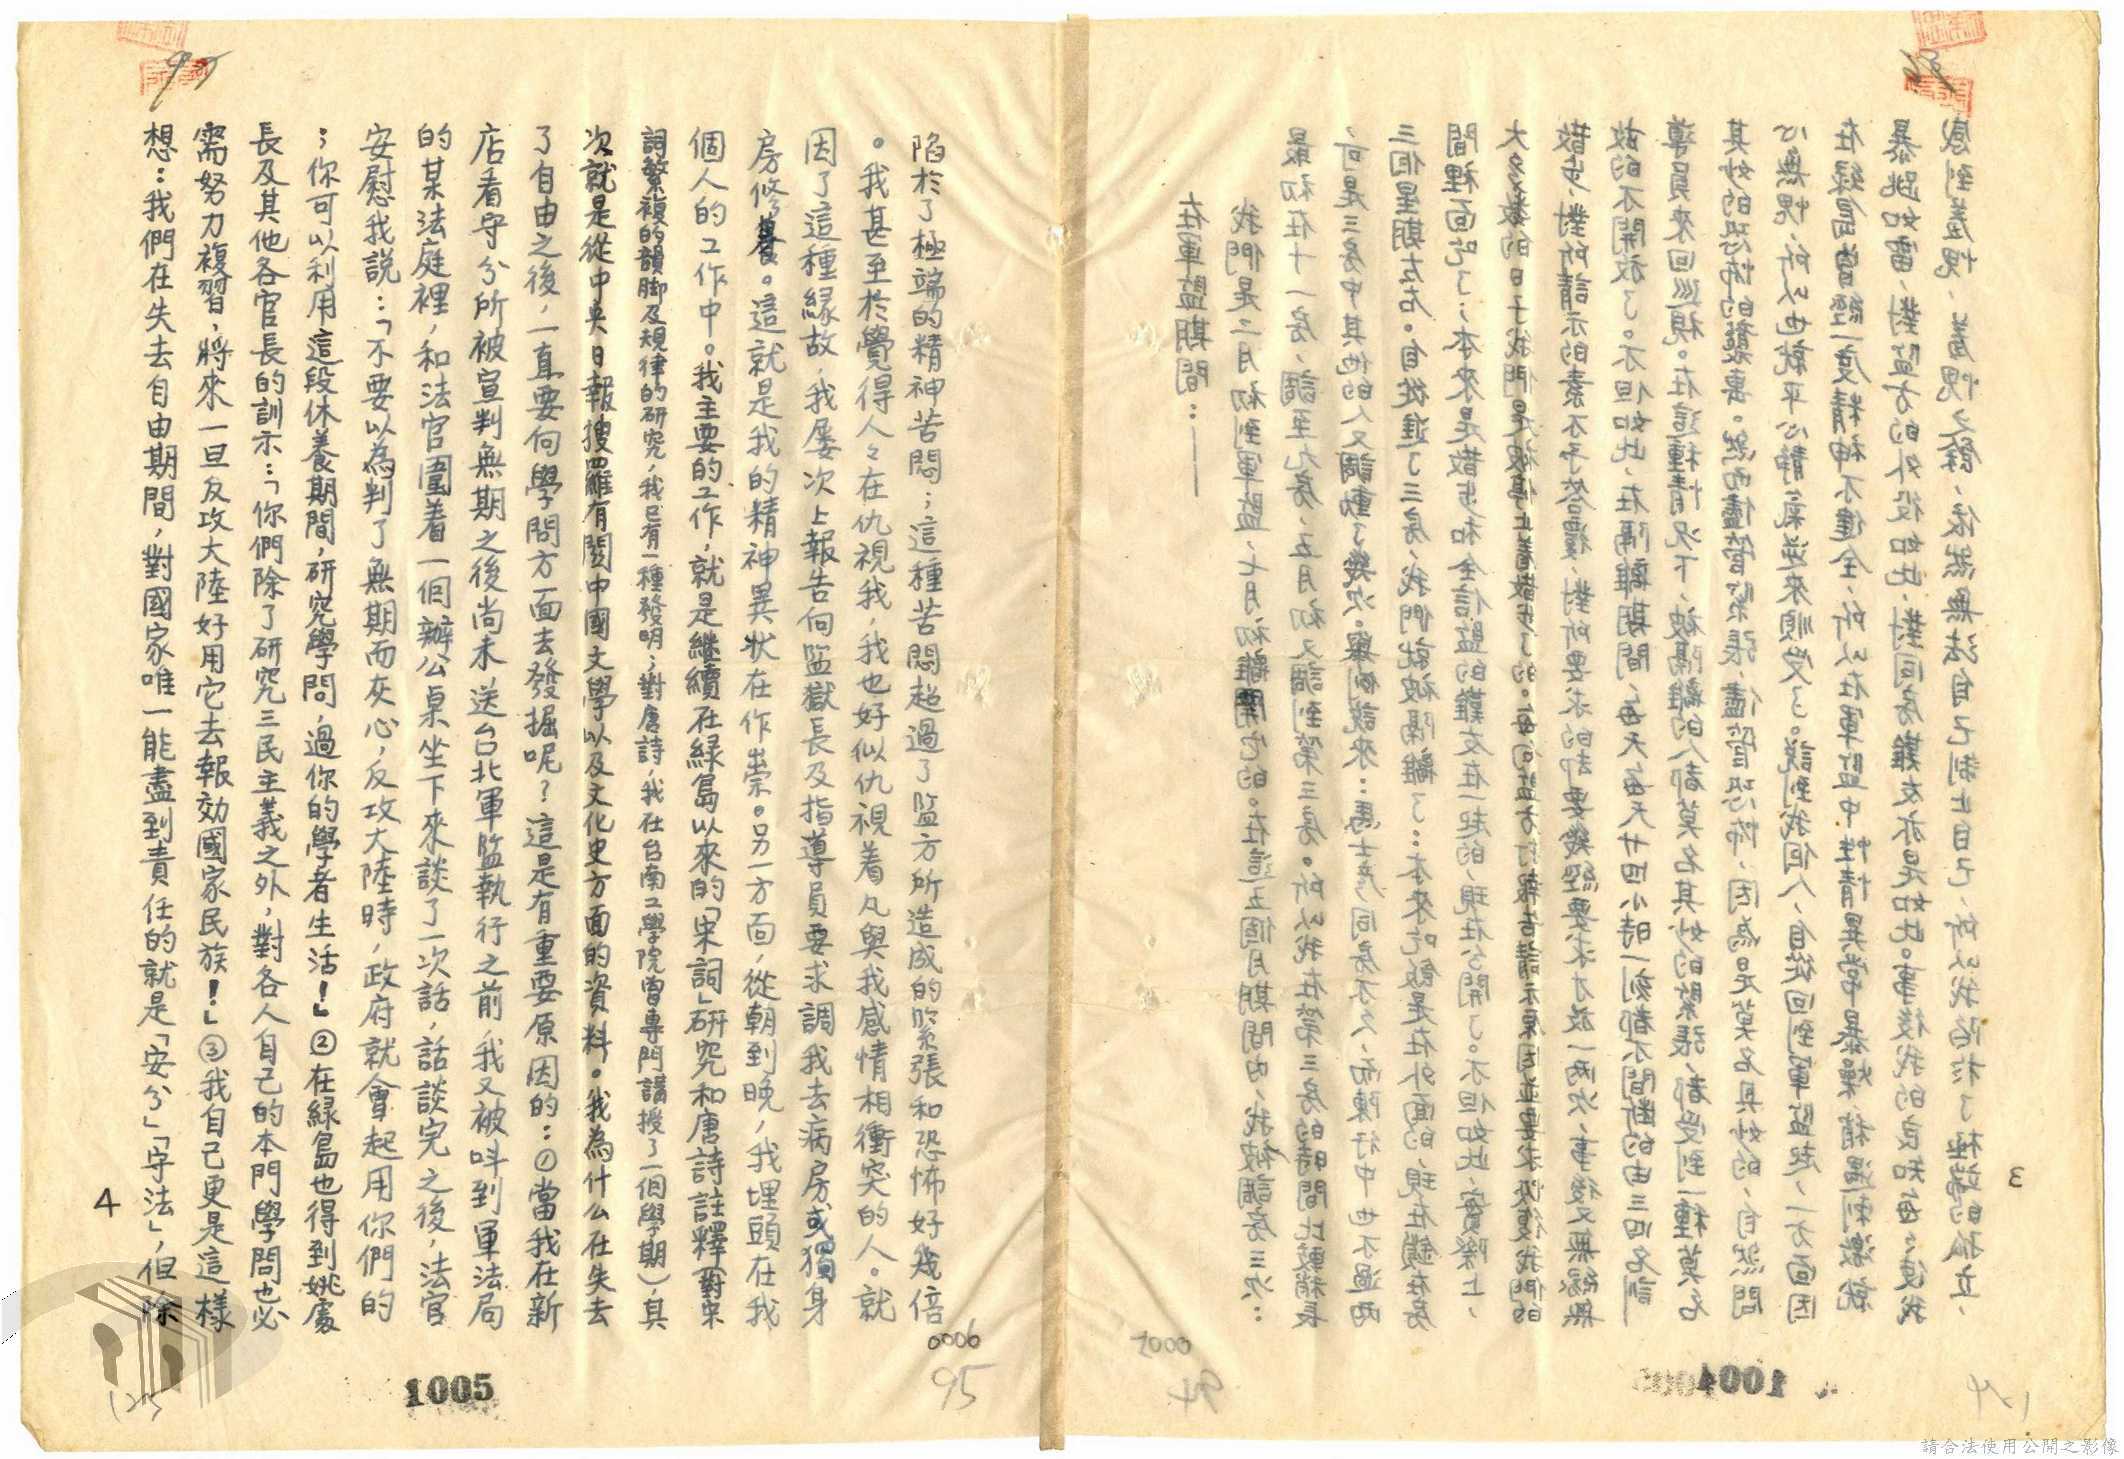 在軍監期間：——
我們是二月初到軍監，七月初離開它的。在這五個月期間內，我被調房三次：
最初在十一房，調至九房，五月初又調到第三房。所以我在第三房的時間比較稍長
，可是三房中其他的人又調動了幾次。舉例說來：馬士彥同房不久，而陳行中也不過兩
三個星期左右。自從進了三房，我們就被隔離了：本來吃飯是在外面的，現在鎖在房
間裡面吃了；本來是散步和全信監的難友在一起的，現在分開了。不但如此，實際上，
大多數的日子我們是被停止着散步了的。每向監方打報告請示原因並要求恢復我們的
散步，對所請示的素不予答覆，對所要求的却要幾經要求才放一兩次，事後又無緣無
故的不開放了。不但如此，在隔離期間，每天每天廿四小時一刻都不間斷的由三四名訓
導員來回巡視。在這種情況下，被隔離的人都莫名其妙的緊張，都受到一種莫名
其妙的恐怖的襲裹。然而儘管緊張，儘管恐怖，因為是莫名其妙的，自然問
心無愧，所以也就平心靜氣逆來順受了。說到我個人，自從回到軍監起，一方面因
在綠島曾經一度精神不健全，所以在軍監中，性情異常暴燥，稍遇刺激就
暴跳如雷，對監方的外役如此，對同房難友亦是如此。事後我的良知每々使我
感到羞愧，羞愧之餘，依然無法自己制止自己，所以我陷於了極端的孤立，
3
1004
94
124
陷於了極端的精神苦悶；這種苦悶超過了監方所造成的緊張和恐怖好幾倍
。我甚至於覺得人々在仇視我，我也好似仇視着凡與我感情相衝突的人。就
因了這種緣故，我屢次上報告向監獄長及指導員要求調我去病房或獨身
房修養。這就是我的精神異狀在作祟。另一方面，從朝到晚，我埋頭在我
個人的工作中。我主要的工作，就是繼續在綠島以來的「宋詞」研究和唐詩註釋（對宋
詞繁複的韻脚及規律的研究，我已有一種發明；對唐詩，我在台南工學院曾專門講授了一個學期），其
次就是從中央日報搜羅有關中國文學以及文化史方面的資料。我為什么在失去
了自由之後，一直要向學問方面去發掘呢？這是有重要原因的：①當我在新
店看守分所被宣判無期之後尚未送台北軍監執行之前，我又被叫到軍法局
的某法庭裡，和法官圍着一個辦公桌坐下來談了一次話，話談完之後，法官
安慰我說：「不要以為判了無期而灰心，反攻大陸時，政府就會起用你們的
；你可以利用這段休養期間，研究學問，過你的學者生活！」②在綠島也得到姚處
長及其他各官長的訓示：「你們除了研究三民主義之外，對各人自己的本門學問也必
需努力複習，將來一旦反攻大陸好用它去報効國家民族！」③我自己更是這樣
想：我們在失去自由期間，對國家唯一能盡到責任的就是「安分」「守法」，但除
4
0006
1005
95
125
請合法使用公開之影像